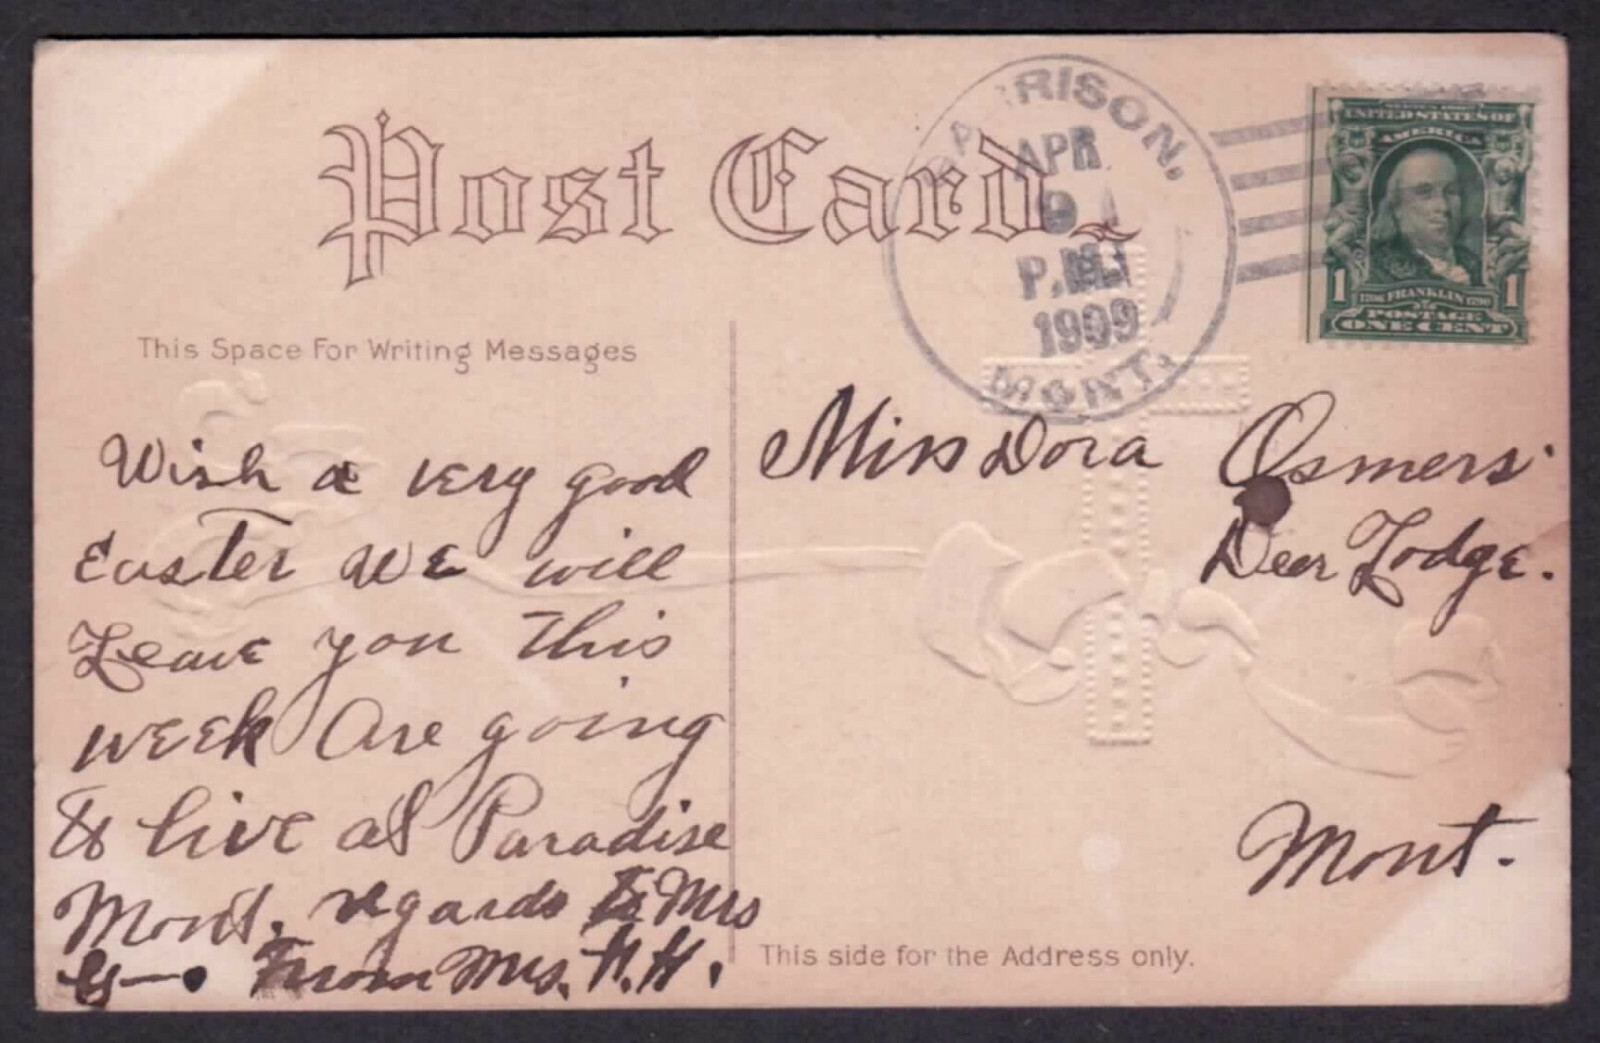 Post Card
GARRISON,
APR
9
P.M.
1909
MONT.
UNITED STATES OF
AMERICA
1 1706 FRANKLIN 1790 1
POSTAGE
ONE CENT
This Space For Writing Messages
Wish a very good
Easter We will
Leave you this
week Are going
to live at Paradise
Mont. regards to Mrs
G— From Mrs. H. H.
Miss Dora Osmers
Deer Lodge.
Mont.
This side for the Address only.